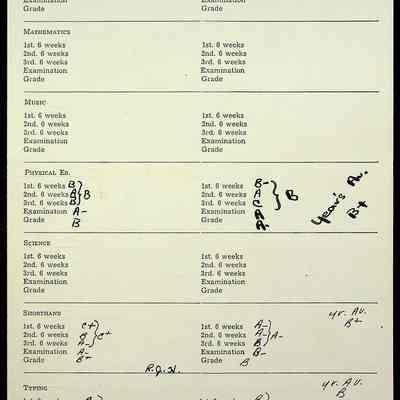 Examination Examination
Grade Grade
MATHEMATICS
1st. 6 weeks 1st. 6 weeks
2nd. 6 weeks 2nd. 6 weeks
3rd. 6 weeks 3rd. 6 weeks
Examination Examination
Grade Grade
MUSIC
1st. 6 weeks 1st. 6 weeks
2nd. 6 weeks 2nd. 6 weeks
3rd. 6 weeks 3rd. 6 weeks
Examination Examination
Grade Grade
PHYSICAL ED.
1st. 6 weeks B 1st. 6 weeks B- Year's Av.
2nd. 6 weeks A B 2nd. 6 weeks A B B+
3rd. 6 weeks B 3rd. 6 weeks C
Examination A- Examination A
Grade B Grade A-
SCIENCE
1st. 6 weeks 1st. 6 weeks
2nd. 6 weeks 2nd. 6 weeks
3rd. 6 weeks 3rd. 6 weeks
Examination Examination
Grade Grade
SHORTHAND yr. Av.
1st. 6 weeks C+ 1st. 6 weeks A- B+
2nd. 6 weeks C+ 2nd. 6 weeks A- A-
3rd. 6 weeks A- 3rd. 6 weeks B
Examination A- Examination B-
Grade B+ Grade B
R.J.H.
TYPING yr. Av.
B
1st. 6 weeks 1st. 6 weeks